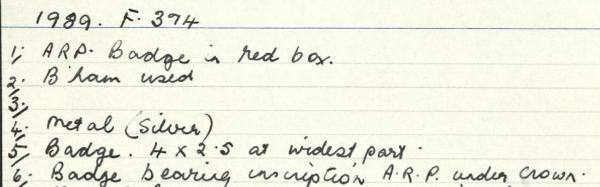 1989. F. 374
1; A.R.P. Badge in red box.
2. B'ham used
3;
4; metal (silver)
5; Badge. 4 x 2.5 at widest part.
6; Badge bearing inscription A.R.P. under crown.